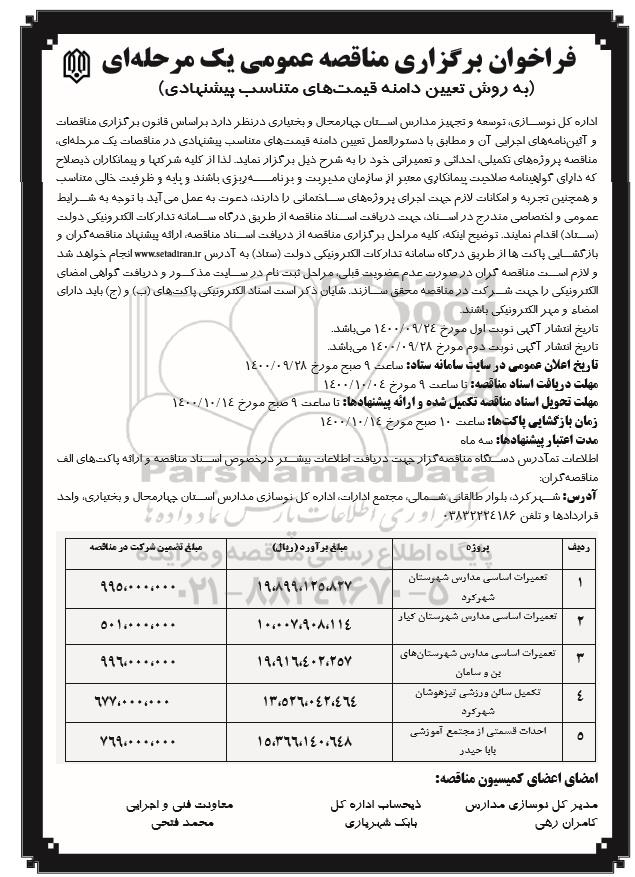 فراخوان برگزاری مناقصه عمومی یک مرحله‌ای
(به روش تعیین دامنه قیمت‌های متناسب پیشنهادی)
اداره کل نوسازی، توسعه و تجهیز مدارس استان چهارمحال و بختیاری درنظر دارد براساس قانون برگزاری مناقصات
و آئین‌نامه‌های اجرایی آن و مطابق با دستورالعمل تعیین دامنه قیمت‌های متناسب پیشنهادی در مناقصات یک مرحله‌ای،
مناقصه پروژه‌های تکمیلی، احداثی و تعمیراتی خود را به شرح ذیل برگزار نماید. لذا از کلیه شرکتها و پیمانکاران ذیصلاح
که دارای گواهینامه صلاحیت پیمانکاری معتبر از سازمان مدیریت و برنامه‌ریزی باشند و پایه و ظرفیت خالی متناسب
و همچنین تجربه و امکانات لازم جهت اجرای پروژه‌های ساختمانی را دارند، دعوت به عمل می‌آید با توجه به شرایط
عمومی و اختصاصی مندرج در اسناد، جهت دریافت اسناد مناقصه از طریق درگاه سامانه تدارکات الکترونیکی دولت
(ستاد) اقدام نمایند. توضیح اینکه، کلیه مراحل برگزاری مناقصه از دریافت اسناد مناقصه، ارائه پیشنهاد مناقصه‌گران و
بازگشایی پاکت ها از طریق درگاه سامانه تدارکات الکترونیکی دولت (ستاد) به آدرس www.setadiran.ir انجام خواهد شد
و لازم است مناقصه گران در صورت عدم عضویت قبلی، مراحل ثبت نام در سایت مذکور و دریافت گواهی امضای
الکترونیکی را جهت شرکت در مناقصه محقق سازند. شایان ذکر است اسناد الکترونیکی پاکت‌های (ب) و (ج) باید دارای
امضاء و مهر الکترونیکی باشند.
تاریخ انتشار آگهی نوبت اول مورخ ۱۴۰۰/۰۹/۲۴ می‌باشد.
تاریخ انتشار آگهی نوبت دوم مورخ ۱۴۰۰/۰۹/۲۸ می‌باشد.
تاریخ اعلان عمومی در سایت سامانه ستاد: ساعت ۹ صبح مورخ ۱۴۰۰/۰۹/۲۸
مهلت دریافت اسناد مناقصه: تا ساعت ۹ مورخ ۱۴۰۰/۱۰/۰۴
مهلت تحویل اسناد مناقصه تکمیل شده و ارائه پیشنهادها: تا ساعت ۹ صبح مورخ ۱۴۰۰/۱۰/۱۴
زمان بازگشایی پاکت‌ها: ساعت ۱۰ صبح مورخ ۱۴۰۰/۱۰/۱۴
مدت اعتبار پیشنهادها: سه ماه
اطلاعات تماس‌آدرس دستگاه مناقصه‌گزار جهت دریافت اطلاعات بیشتر درخصوص اسناد مناقصه و ارائه پاکت‌های الف
مناقصه‌گران:
ParsNamadData
آدرس: شهرکرد، بلوار طالقانی شمالی، مجتمع ادارات، اداره کل نوسازی مدارس استان چهارمحال و بختیاری، واحد
قراردادها و تلفن ۰۳۸۳۲۲۲۴۱۸۶
پایگاه اطلاع رسانی مناقصه و مزایده
۰۲۱-۸۸۳۴۹۶۷۰-۵
ردیف پروژه مبلغ برآورد (ریال) مبلغ تضمین شرکت در مناقصه
۱ تعمیرات اساسی مدارس شهرستان شهرکرد ۱۹،۸۹۹،۱۲۵،۸۲۷ ۹۹۵،۰۰۰،۰۰۰
۲ تعمیرات اساسی مدارس شهرستان کیار ۱۰،۰۰۷،۹۰۸،۱۱۴ ۵۰۱،۰۰۰،۰۰۰
۳ تعمیرات اساسی مدارس شهرستان‌های بن و سامان ۱۹،۹۱۶،۴۰۲،۲۵۷ ۹۹۶،۰۰۰،۰۰۰
۴ تکمیل سالن ورزشی تیزهوشان شهرکرد ۱۳،۵۲۶،۰۴۲،۴۶۴ ۶۷۷،۰۰۰،۰۰۰
۵ احداث قسمتی از مجتمع آموزشی بابا حیدر ۱۵،۳۶۶،۱۴۰،۶۴۸ ۷۶۹،۰۰۰،۰۰۰
امضای اعضای کمیسیون مناقصه:
مدیر کل نوسازی مدارس ذیحساب اداره کل معاونت فنی و اجرایی
کامران رهی بابک شهریاری محمد فتحی